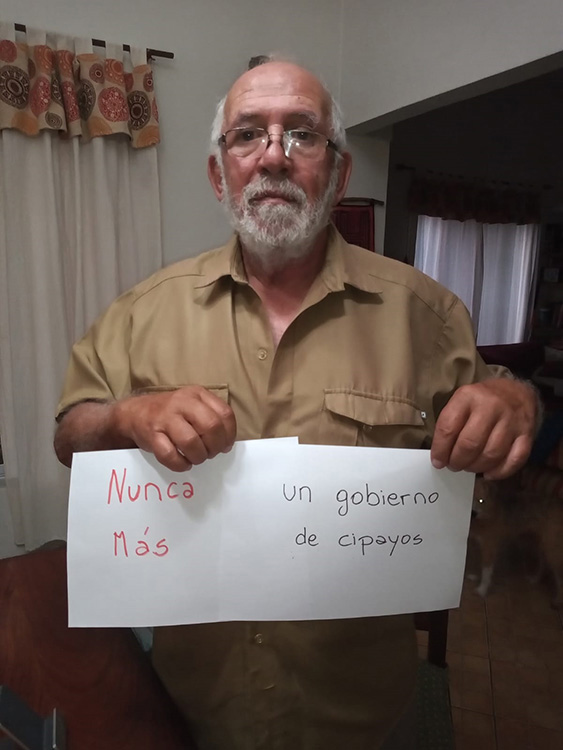 Nunca
Más
un gobierno
de cipayos